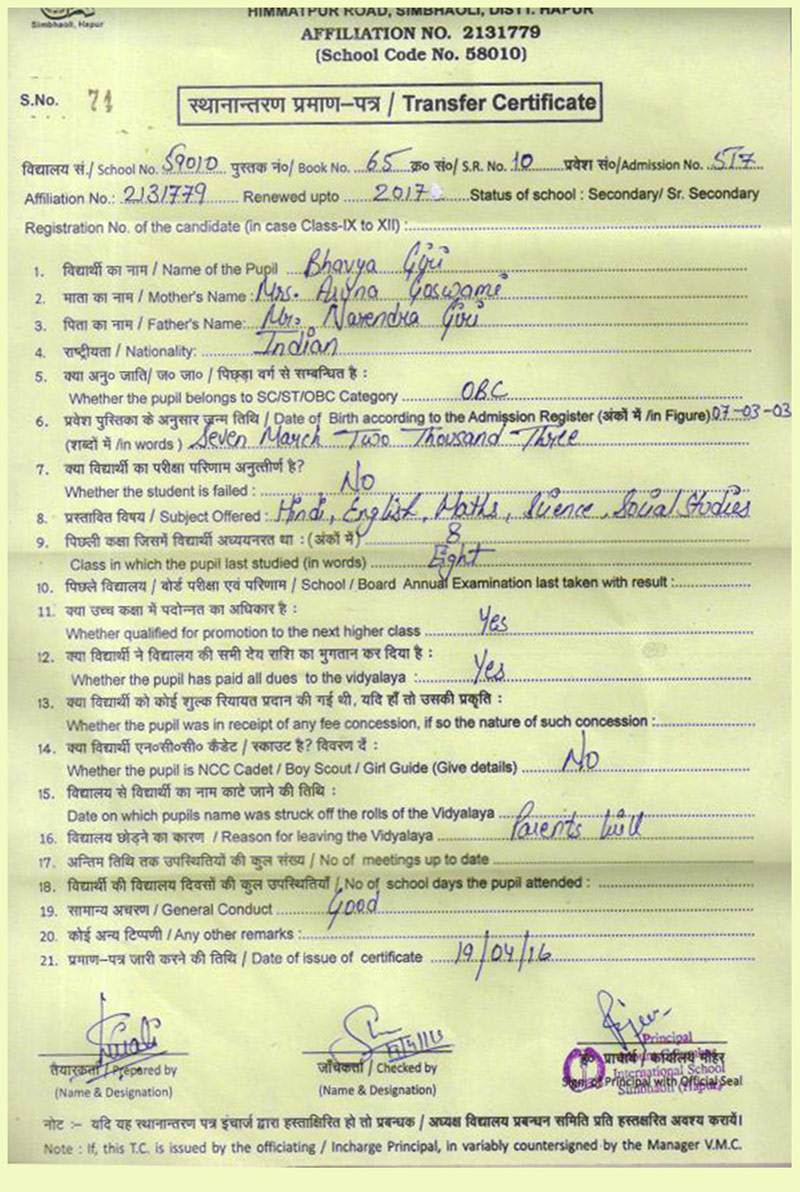 Simbhaoli, Hapur
HIMMATPUR ROAD, SIMBHAOLI, DISTT. HAPUR
AFFILIATION NO. 2131779
(School Code No. 58010)
S.No. 71
स्थानान्तरण प्रमाण-पत्र / Transfer Certificate
विद्यालय सं./ School No. 59010 पुस्तक नं०/ Book No. 65 क्र० सं०/ S.R. No. 10 प्रवेश सं०/Admission No. 517
Affiliation No.: 2131779 Renewed upto 2017 Status of school : Secondary/ Sr. Secondary
Registration No. of the candidate (in case Class-IX to XII) :
1. विद्यार्थी का नाम / Name of the Pupil Bhavya Giri
2. माता का नाम / Mother's Name : Mrs. Goswami
3. पिता का नाम / Father's Name: Mr. Narendra Giri
4. राष्ट्रीयता / Nationality: Indian
5. क्या अनु० जाति/ ज० जा० / पिछड़ा वर्ग से सम्बन्धित है :
Whether the pupil belongs to SC/ST/OBC Category OBC
6. प्रवेश पुस्तिका के अनुसार जन्म तिथि / Date of Birth according to the Admission Register (अंकों में /in Figure) 07-03-03
(शब्दों में /in words ) Seven March Two Thousand Three
7. क्या विद्यार्थी का परीक्षा परिणाम अनुत्तीर्ण है?
Whether the student is failed : No
8. प्रस्तावित विषय / Subject Offered : Hindi, English, Maths, Science, Social Studies
9. पिछली कक्षा जिसमें विद्यार्थी अध्ययनरत था : (अंकों में) 8
Class in which the pupil last studied (in words) Eight
10. पिछले विद्यालय / बोर्ड परीक्षा एवं परिणाम / School / Board Annual Examination last taken with result :
11. क्या उच्च कक्षा में पदोन्नत का अधिकार है :
Whether qualified for promotion to the next higher class Yes
12. क्या विद्यार्थी ने विद्यालय की सभी देय राशि का भुगतान कर दिया है :
Whether the pupil has paid all dues to the vidyalaya : Yes
13. क्या विद्यार्थी को कोई शुल्क रियायत प्रदान की गई थी, यदि हाँ तो उसकी प्रकृति :
Whether the pupil was in receipt of any fee concession, if so the nature of such concession :
14. क्या विद्यार्थी एन०सी०सी० कैडेट / स्काउट है? विवरण दें :
Whether the pupil is NCC Cadet / Boy Scout / Girl Guide (Give details) No
15. विद्यालय से विद्यार्थी का नाम काटे जाने की तिथि :
Date on which pupils name was struck off the rolls of the Vidyalaya
16. विद्यालय छोड़ने का कारण / Reason for leaving the Vidyalaya Parents Will
17. अन्तिम तिथि तक उपस्थितियों की कुल संख्य / No of meetings up to date
18. विद्यार्थी की विद्यालय दिवसों की कुल उपस्थितियाँ / No of school days the pupil attended :
19. सामान्य अचरण / General Conduct Good
20. कोई अन्य टिप्पणी / Any other remarks :
21. प्रमाण-पत्र जारी करने की तिथि / Date of issue of certificate 19/04/16
तैयारकर्ता / Prepared by
(Name & Designation)
जाँचकर्ता / Checked by
(Name & Designation)
Principal
ह० प्राचार्य / कार्यालय मोहर
International School
Sign. of Principal with Official Seal
Simbhaoli (Hapur)
नोट :- यदि यह स्थानान्तरण पत्र इंचार्ज द्वारा हस्ताक्षरित हो तो प्रबन्धक / अध्यक्ष विद्यालय प्रबन्धन समिति प्रति हस्तक्षरित अवश्य करायें।
Note : If, this T.C. is issued by the officiating / Incharge Principal, in variably countersigned by the Manager V.M.C.